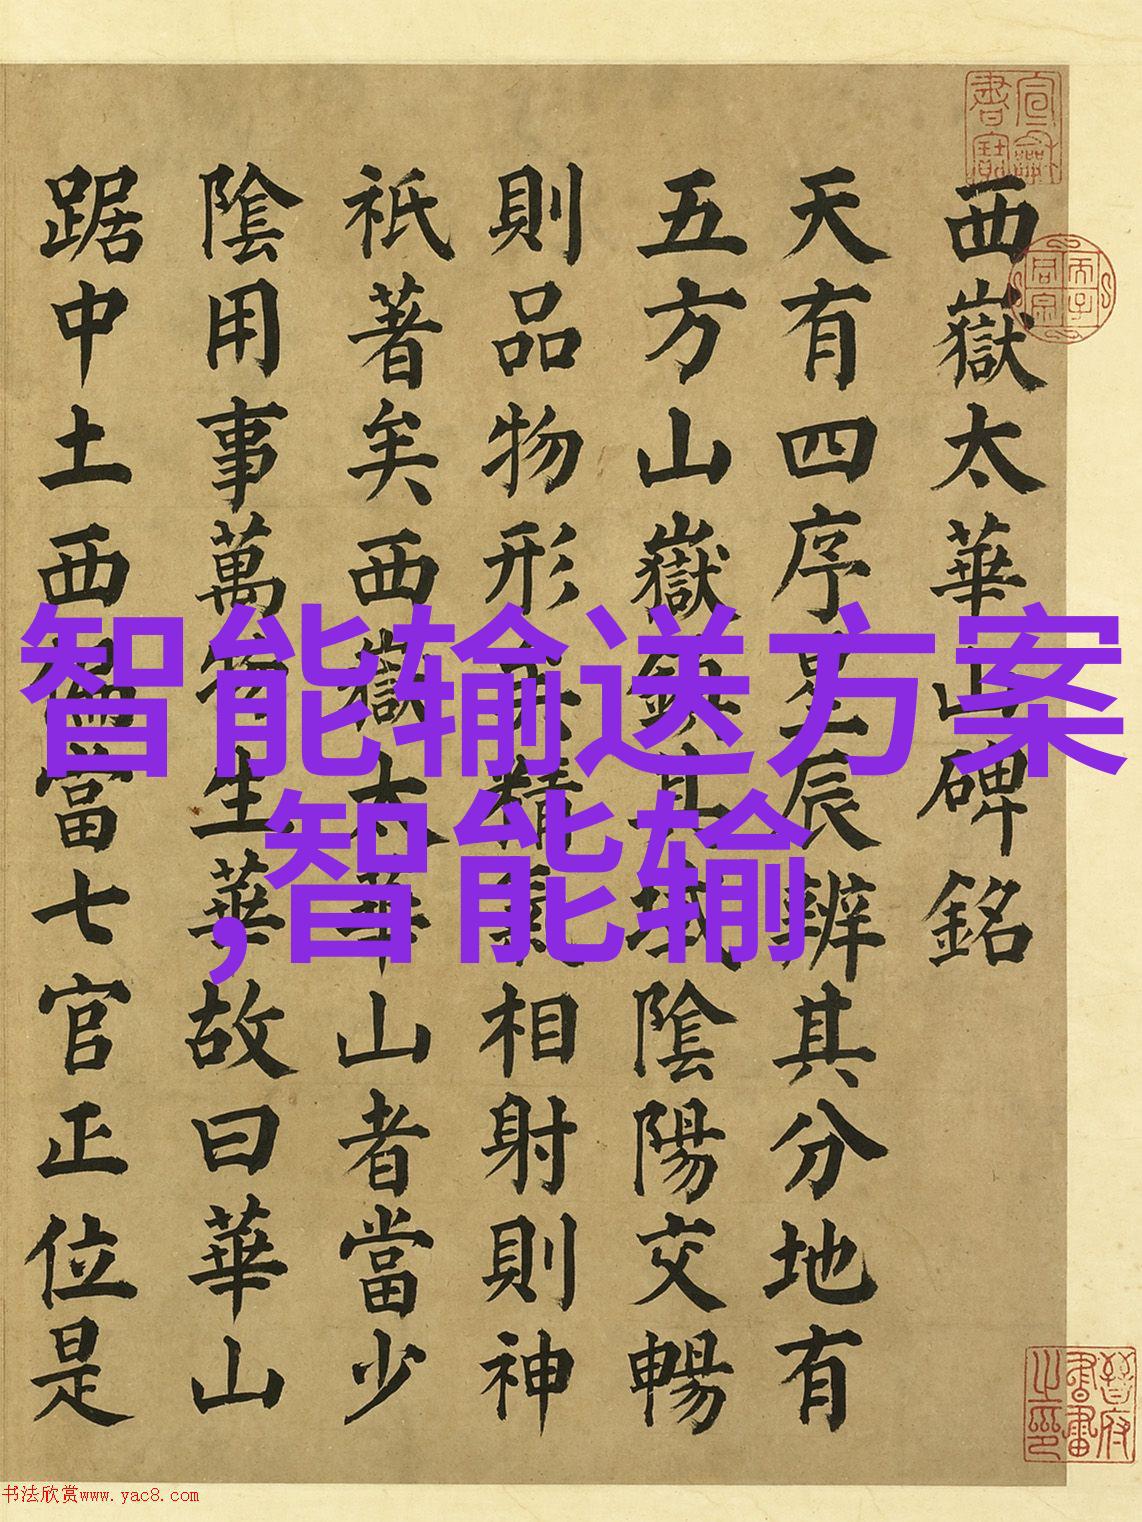 西嶽太華山碑銘
天有四序星辰辨其分地有
五方山嶽鎮其域陰陽交暢
則品物形精氣相射則神
祇著矣西嶽太華山者當少
陰用事萬物生華故曰華山
踞中土西偏當七官正位是
智能输送方案
,智能输
晉府書畫之印
书法欣赏www.yac8.com